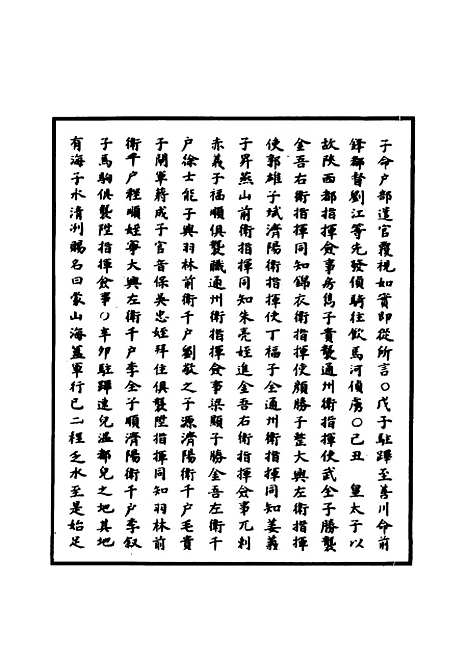 子命户部遣官覆視如實即從所言○戊子駐蹕至善川命前
鋒都督劉江等先發偵騎往飲馬河偵虜○己丑　皇太子以
故陝西都指揮僉事房嶲子貴襲通州衛指揮使武全子勝襲
金吾右衛指揮同知錦衣衛指揮使顏勝子整大興左衛指揮
使郭雄子斌濟陽衛指揮使丁福子全通州衛指揮同知姜義
子昇燕山前衛指揮同知朱亮姪進金吾右衛指揮僉事兀剌
赤義子福順俱襲職通州衛指揮僉事梁顯子勝金吾左衛千
户徐士能子興羽林前衛千户劉敬之子源濟陽衛千户毛貴
子閏軍蔣成子官音保吳忠姪拜住俱襲陞指揮同知羽林前
衛千户程順姪寧大興左衛千户李全子順濟陽衛千户李釵
子馬駒俱襲陞指揮僉事○辛卯駐蹕遠兒溫都兒之地其地
有海子水清冽賜名曰蒙山海蓋軍行已二程乏水至是始足